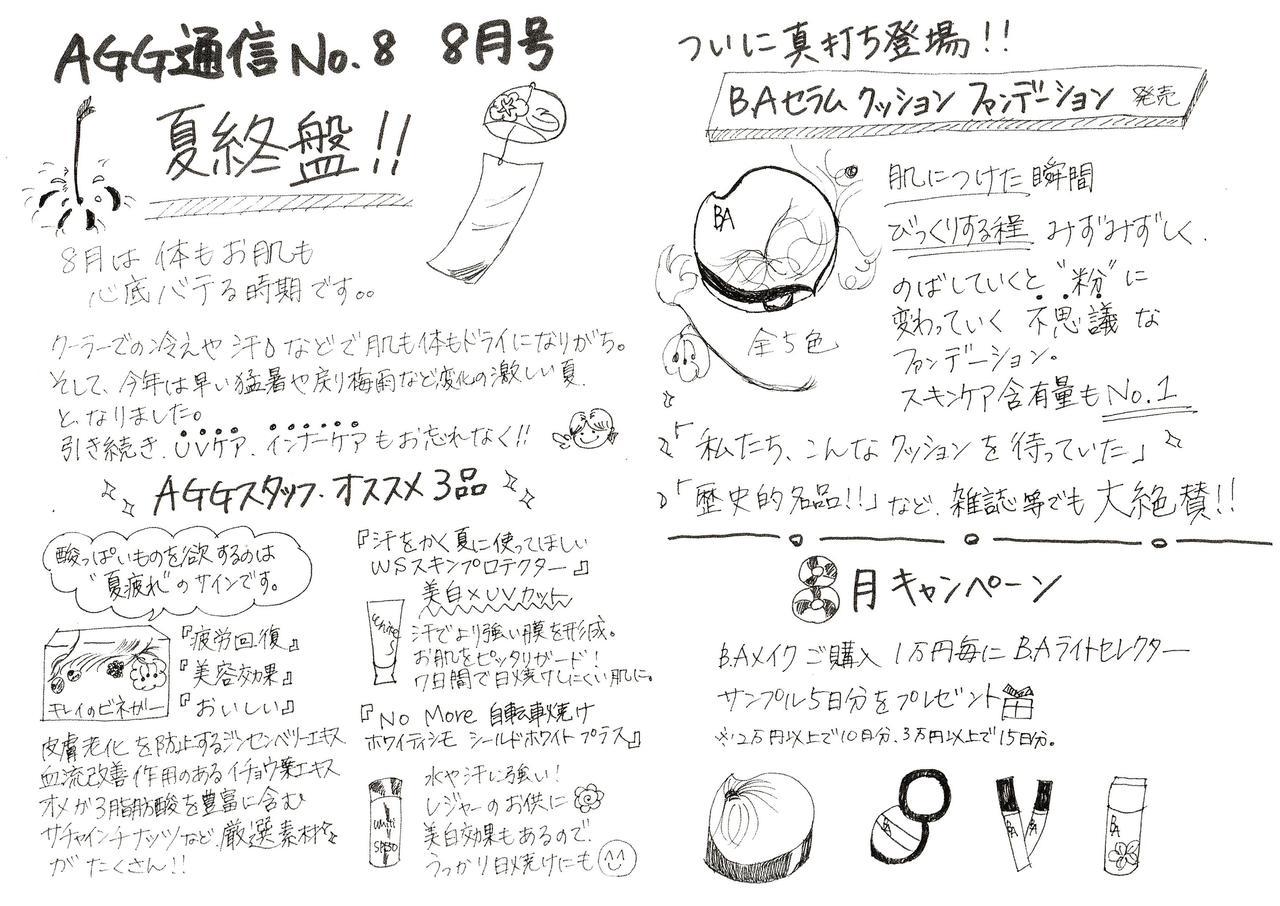 AGG通信No.8 8月号
夏終盤!!
8月は体もお肌も
心底バテる時期です。。
クーラーでの冷えや汗などで肌も体もドライになりがち。
そして、今年は早い猛暑や戻り梅雨など変化の激しい夏
と、なりました。
引き続き、UVケア、インナーケアもお忘れなく!!
AGGスタッフ・オススメ3品
酸っぱいものを欲するのは
"夏疲れ"のサインです。
キレイのビネガー
『疲労回復』
『美容効果』
『おいしい』
皮膚老化を防止するジンセンベリーエキス
血流改善作用のあるイチョウ葉エキス
オメガ3脂肪酸を豊富に含む
サチャインチナッツなど厳選素材
がたくさん!!
『汗をかく夏に使ってほしい
WSスキンプロテクター』
美白×UVカット
汗でより強い膜を形成。
お肌をピッタリガード!
7日間で日焼けしにくい肌に。
『No More 自転車焼け
ホワイティシモ シールドホワイト プラス』
whiti
SP50
水や汗に強い!
レジャーのお供に
美白効果もあるので
うっかり日焼けにも
ついに真打ち登場!!
B.Aセラム クッション ファンデーション 発売
BA
全5色
肌につけた瞬間
びっくりする程 みずみずしく、
のばしていくと"粉"に
変わっていく 不思議な
ファンデーション。
スキンケア含有量もNo.1
「私たち、こんなクッションを待っていた」
「歴史的名品!!」など、雑誌等でも大絶賛!!
8月キャンペーン
B.Aメイクご購入 1万円毎にB.Aライトセレクター
サンプル5日分をプレゼント
※2万円以上で10日分、3万円以上で15日分。
BA
BA
BA
BA